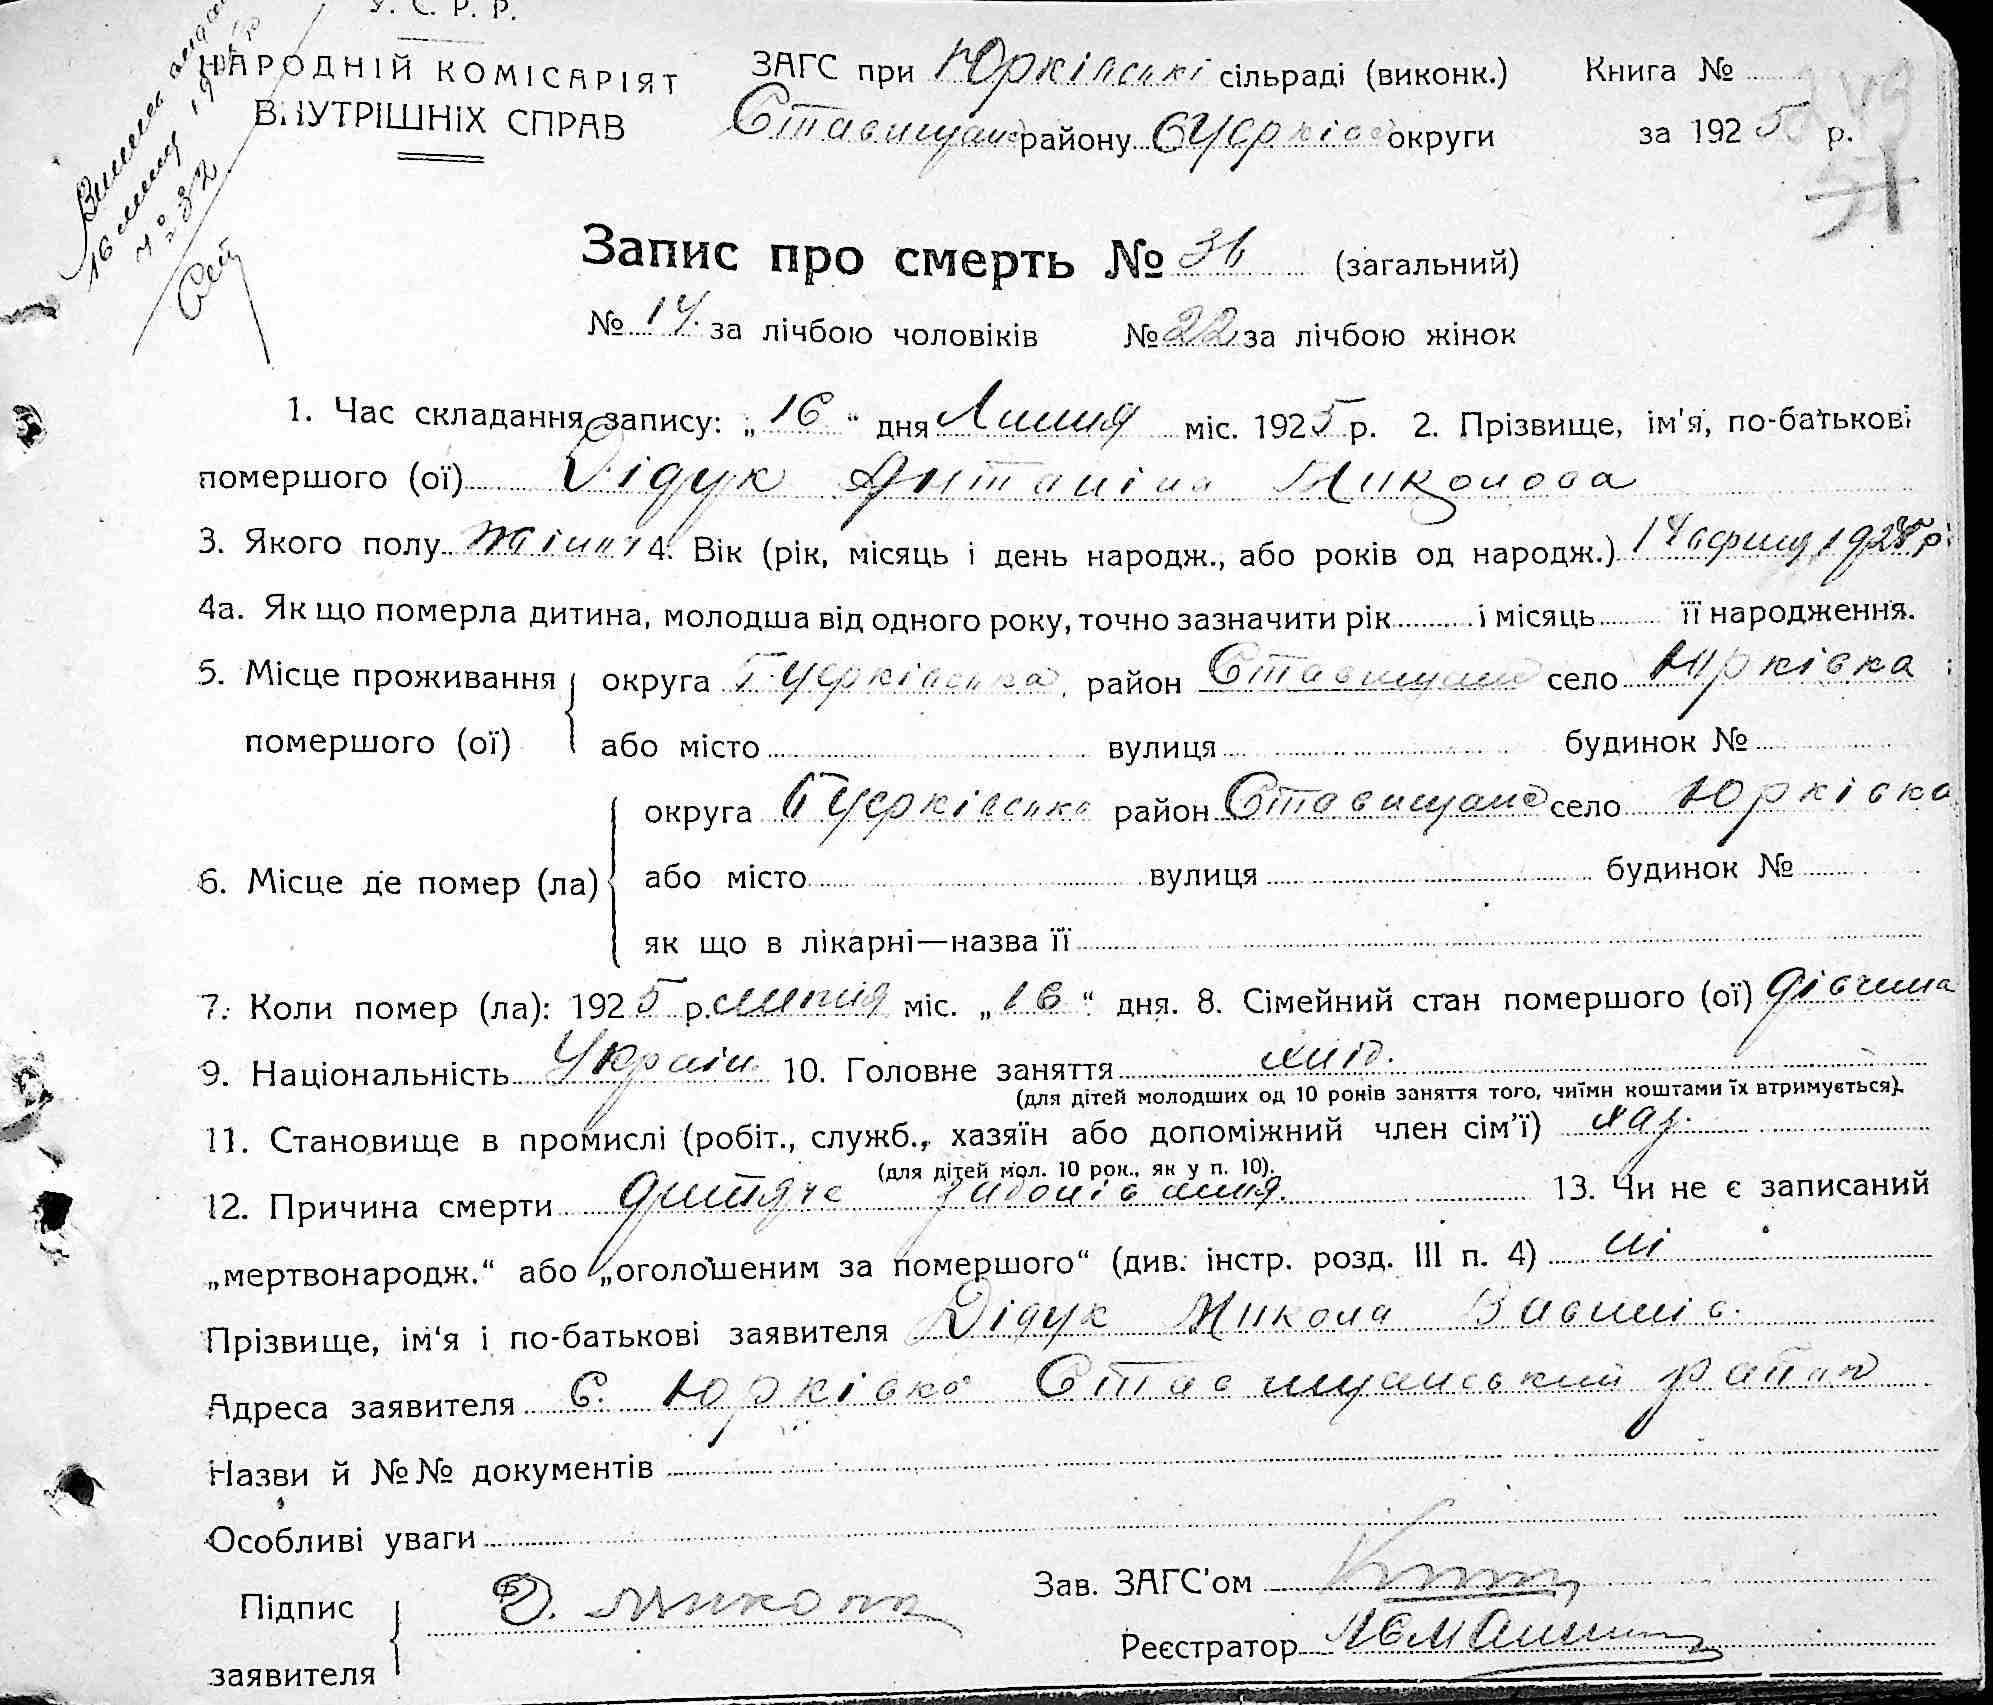 У. С. Р. Р.
НАРОДНІЙ КОМІСАРІЯТ
ВНУТРІШНІХ СПРАВ
ЗАГС при Юрківські сільраді (виконк.) Книга №
Ставищан району Б Церків округи за 1925 р.
16 липня
№ 32
Запис про смерть № 36 (загальний)
№ 14 за лічбою чоловіків № 22 за лічбою жінок
1. Час складання запису: „16“ дня Липня міс. 1925 р. 2. Прізвище, ім'я, по-батькові
помершого (ої) Дідук Антаніна Миколова
3. Якого полу жіноч 4. Вік (рік, місяць і день народж., або років од народж.) 192 р.
4а. Як що померла дитина, молодша від одного року, точно зазначити рік і місяць її народження.
5. Місце проживання округа Б Церківська район Ставищан село Юрківка
помершого (ої) або місто вулиця будинок №
округа Б Церківська район Ставищан село Юрківка
6. Місце де помер (ла) або місто вулиця будинок №
як що в лікарні—назва її
7. Коли помер (ла): 1925 р. липня міс. „16“ дня. 8. Сімейний стан помершого (ої) дівчина
9. Національність Україн 10. Головне заняття хліб.
(для дітей молодших од 10 років заняття того, чиїми коштами їх втримується).
11. Становище в промислі (робіт., служб., хазяїн або допоміжний член сім'ї) хаз.
(для дітей мол. 10 рок., як у п. 10).
12. Причина смерти дитяче заболівання. 13. Чи не є записаний
„мертвонародж.“ або „оголошеним за помершого“ (див. інстр. розд. III п. 4) ні
Прізвище, ім'я і по-батькові заявителя Дідук Микола Вавилів.
Адреса заявителя С. Юрківка Ставищанський район
Назви й №№ документів
Особливі уваги
Підпис заявителя Д. Микола
Зав. ЗАГС'ом
Реєстратор